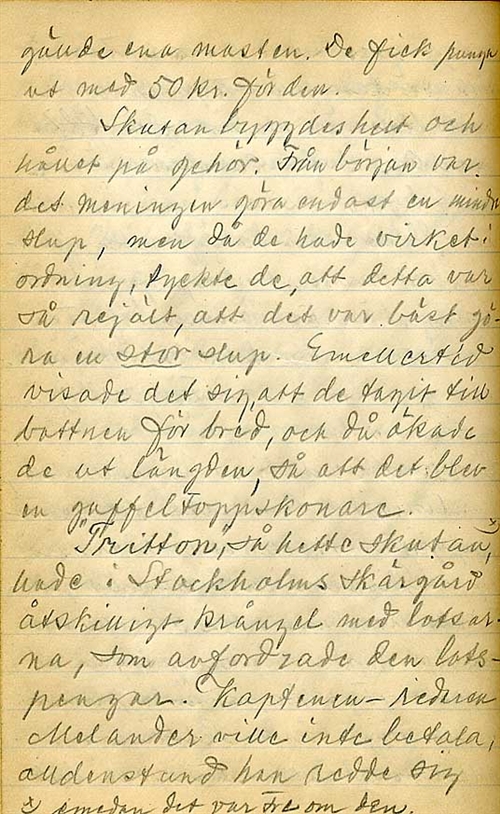 gående ena masten. De fick punga
ut med 50 kr. för den.
Skutan byggdes helt och
hållet på gehör. Från början var
det meningen göra endast en mindre
slup, men då de hade virket i
ordning, tyckte de, att detta var
så rejält, att det var bäst gö-
ra en stor slup. Emellertid
visade det sig, att de tagit till
bottnen för bred, och då ökade
de ut längden, så att det blev
en gaffeltoppskonare.
"Tritton", så hette skutan, x
hade i Stockholms skärgård
åtskilligt krångel med lotsar-
na, som avfordrade den lots-
pengar. Kaptenen-redaren
Melander ville inte betala,
alldenstund han redde sig
x emedan det var tre om den.